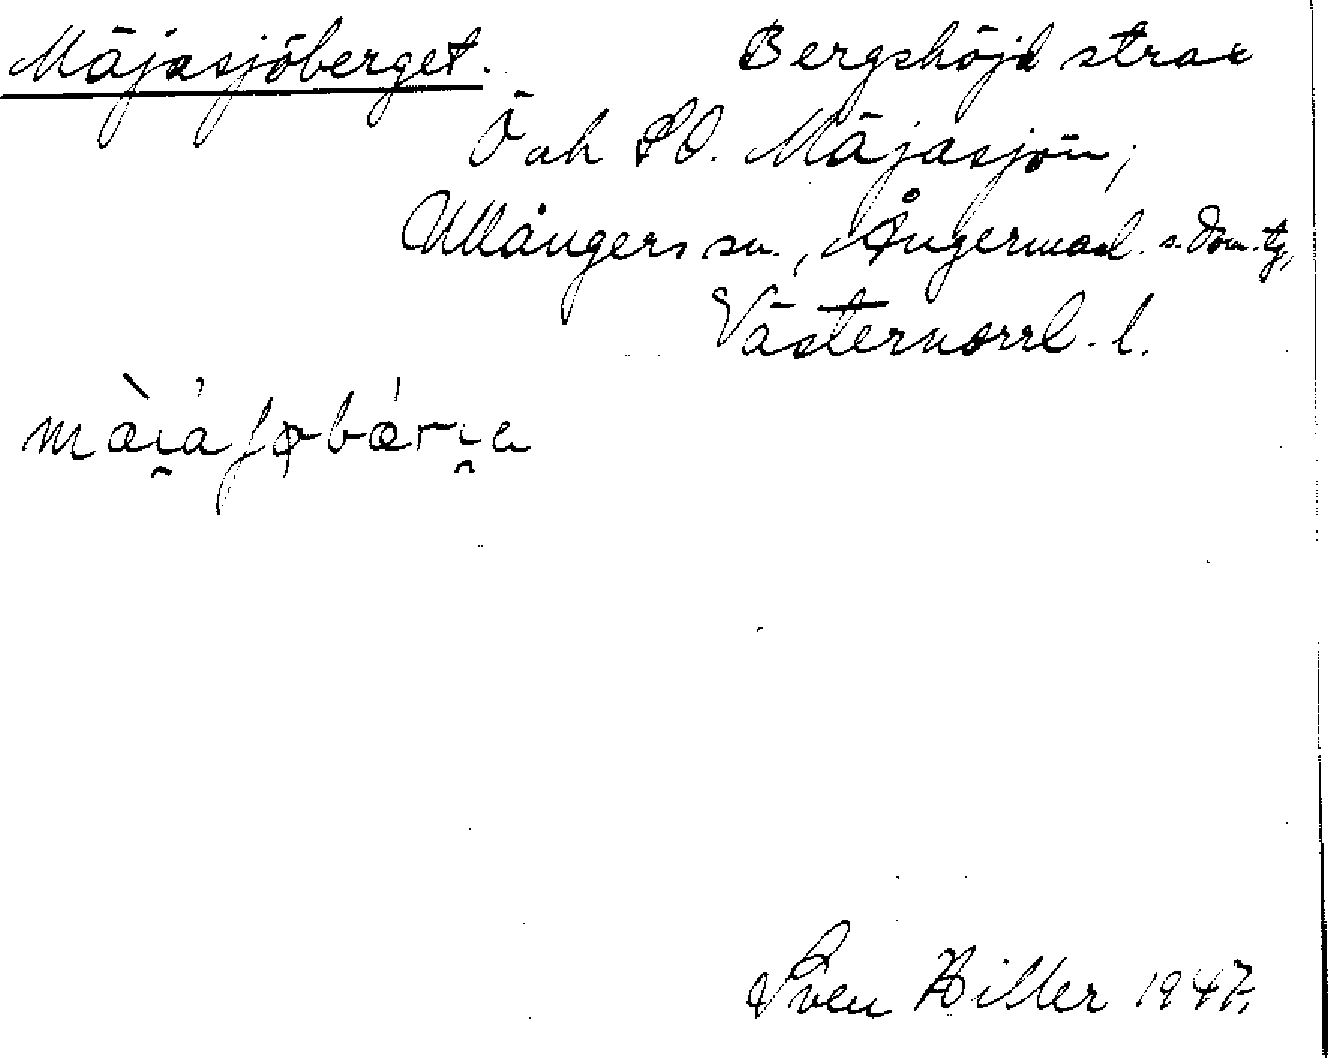 Mäjasjöberget.
Bergshöjd strax
Ö och SO. Mäjasjön,
Ullångers sn., Ångermanl. s. dom. tg,
Västernorrl. l.
Sven Hiller 1947.